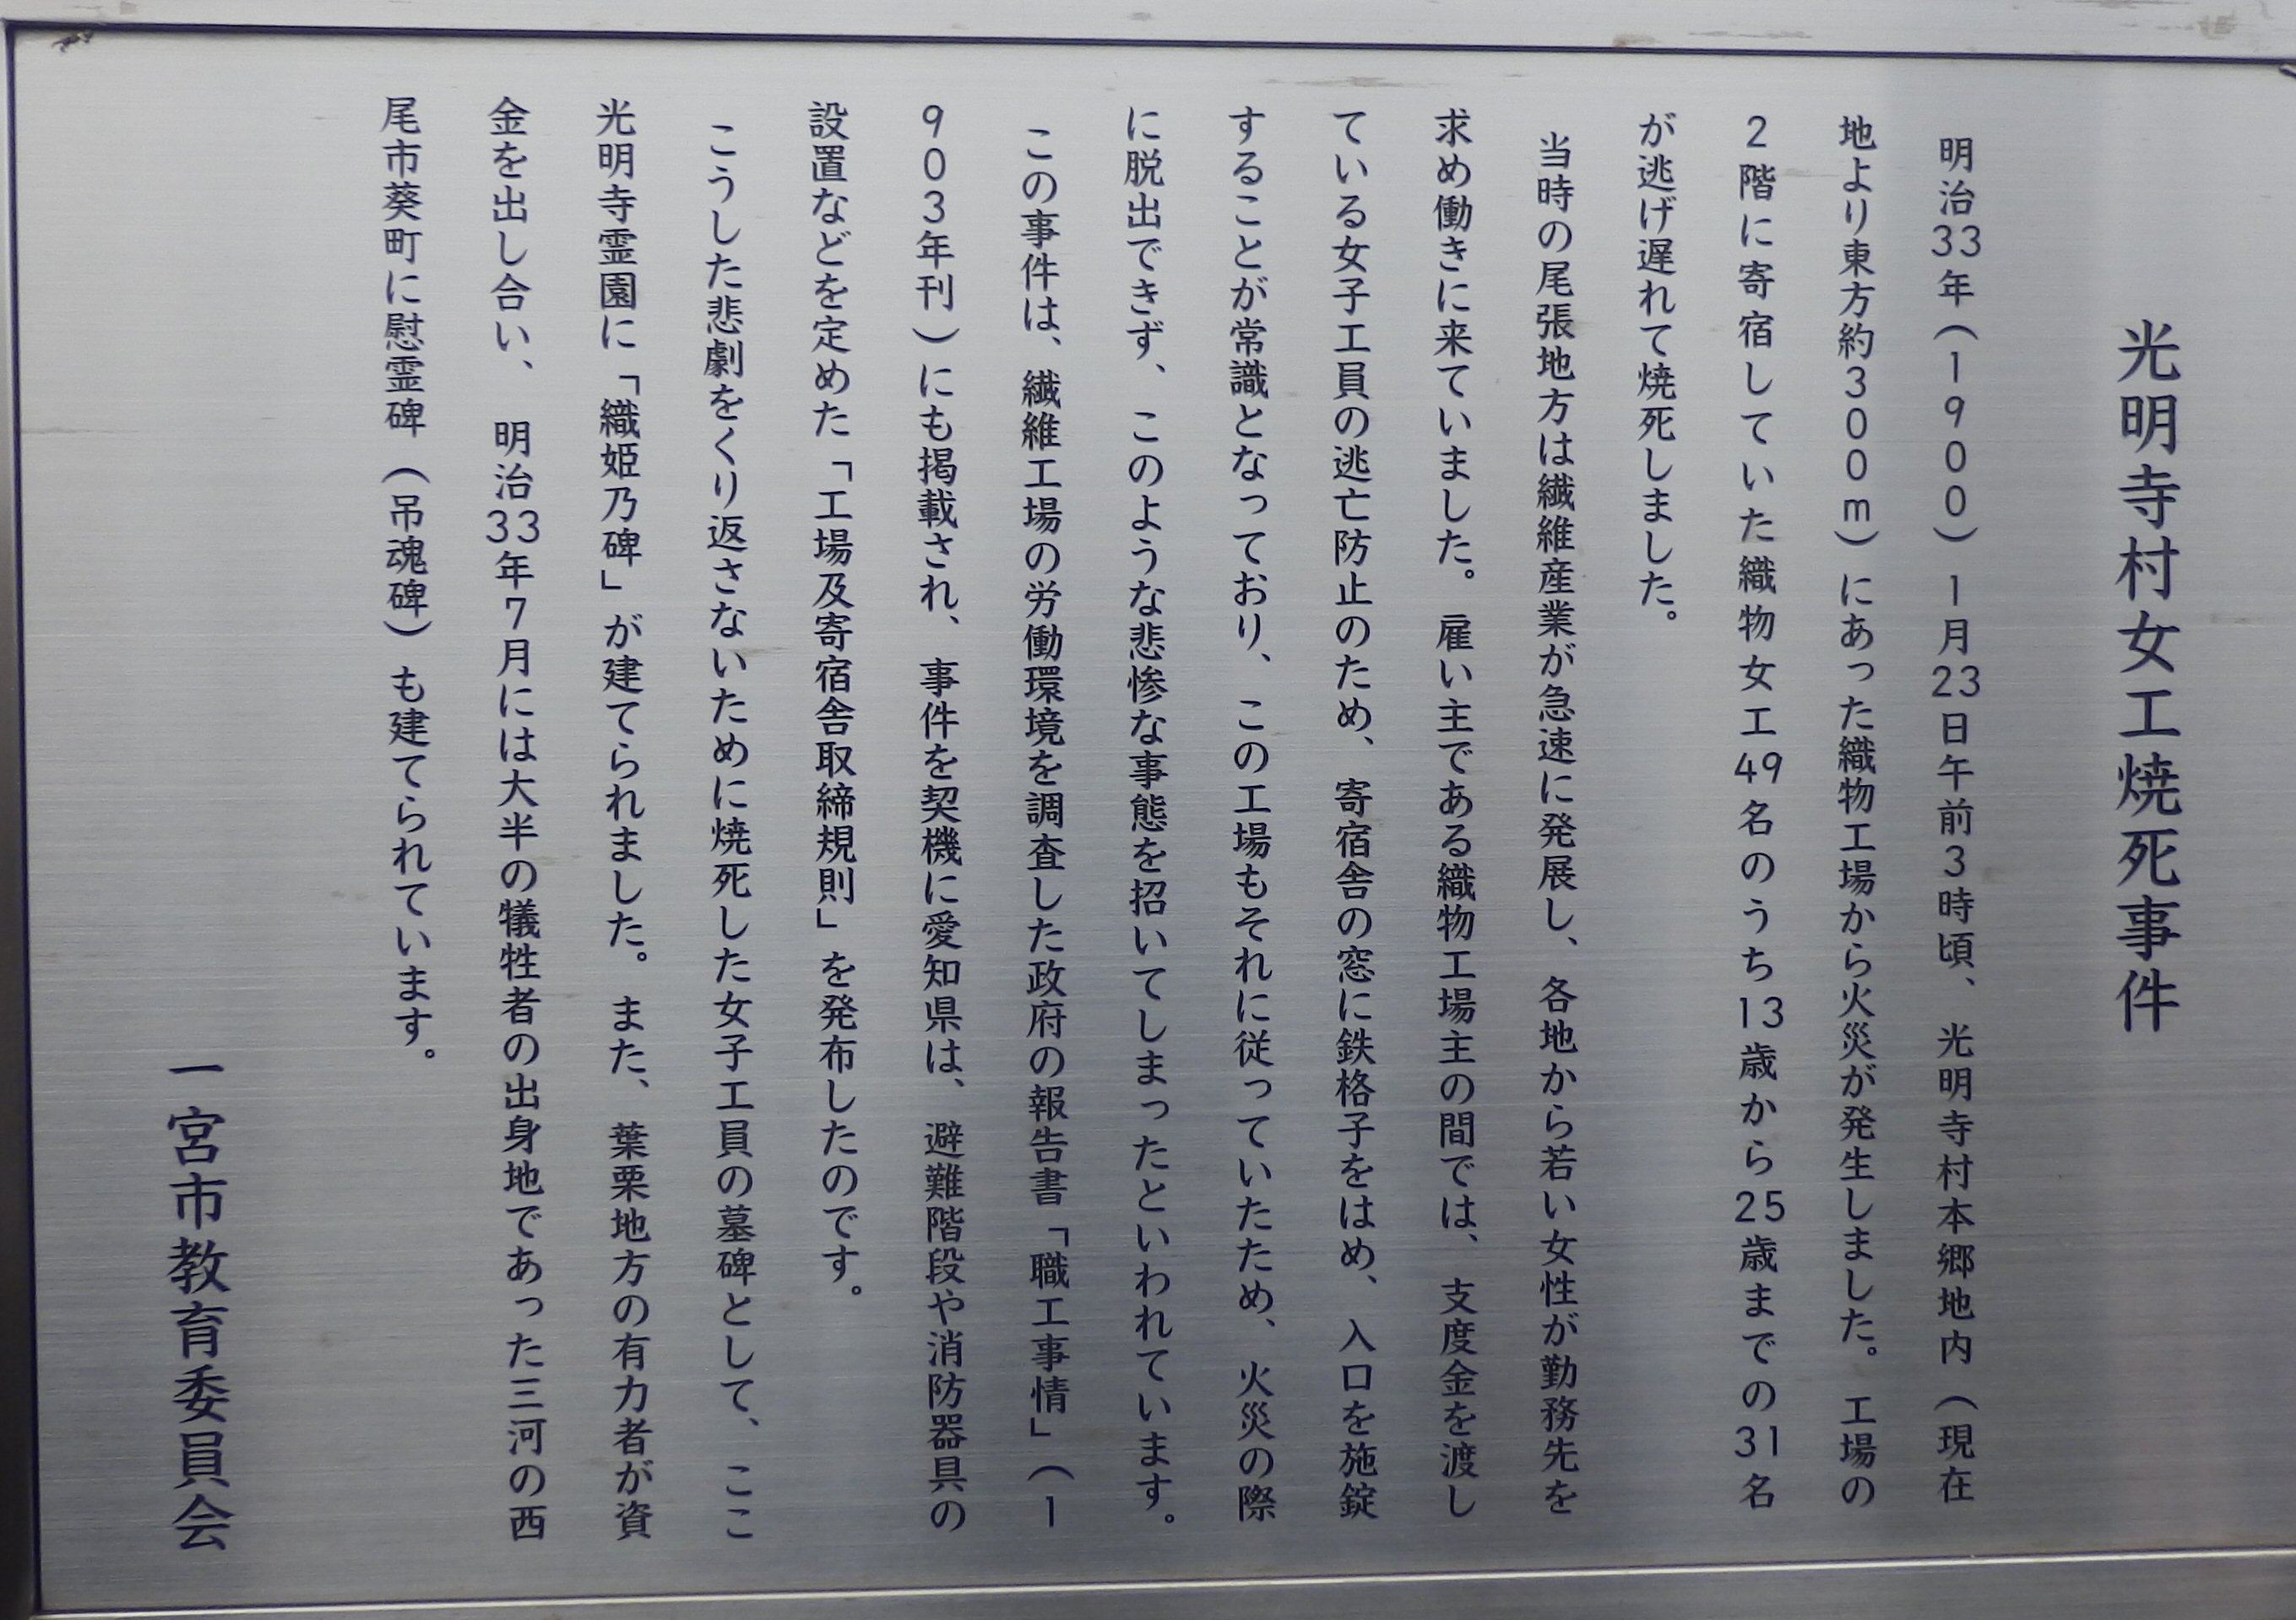 光明寺村女工焼死事件
明治33年(1900)1月23日午前3時頃、光明寺村本郷地内(現在
地より東方約300m)にあった織物工場から火災が発生しました。工場の
2階に寄宿していた織物女工49名のうち13歳から25歳までの31名
が逃げ遅れて焼死しました。
当時の尾張地方は繊維産業が急速に発展し、各地から若い女性が勤務先を
求め働きに来ていました。雇い主である織物工場主の間では、支度金を渡し
ている女子工員の逃亡防止のため、寄宿舎の窓に鉄格子をはめ、入口を施錠
することが常識となっており、この工場もそれに従っていたため、火災の際
に脱出できず、このような悲惨な事態を招いてしまったといわれています。
この事件は、繊維工場の労働環境を調査した政府の報告書「職工事情」(1
903年刊)にも掲載され、事件を契機に愛知県は、避難階段や消防器具の
設置などを定めた「工場及寄宿舎取締規則」を発布したのです。
こうした悲劇をくり返さないために焼死した女子工員の墓碑として、ここ
光明寺霊園に「織姫乃碑」が建てられました。また、葉栗地方の有力者が資
金を出し合い、明治33年7月には大半の犠牲者の出身地であった三河の西
尾市葵町に慰霊碑(吊魂碑)も建てられています。
一宮市教育委員会